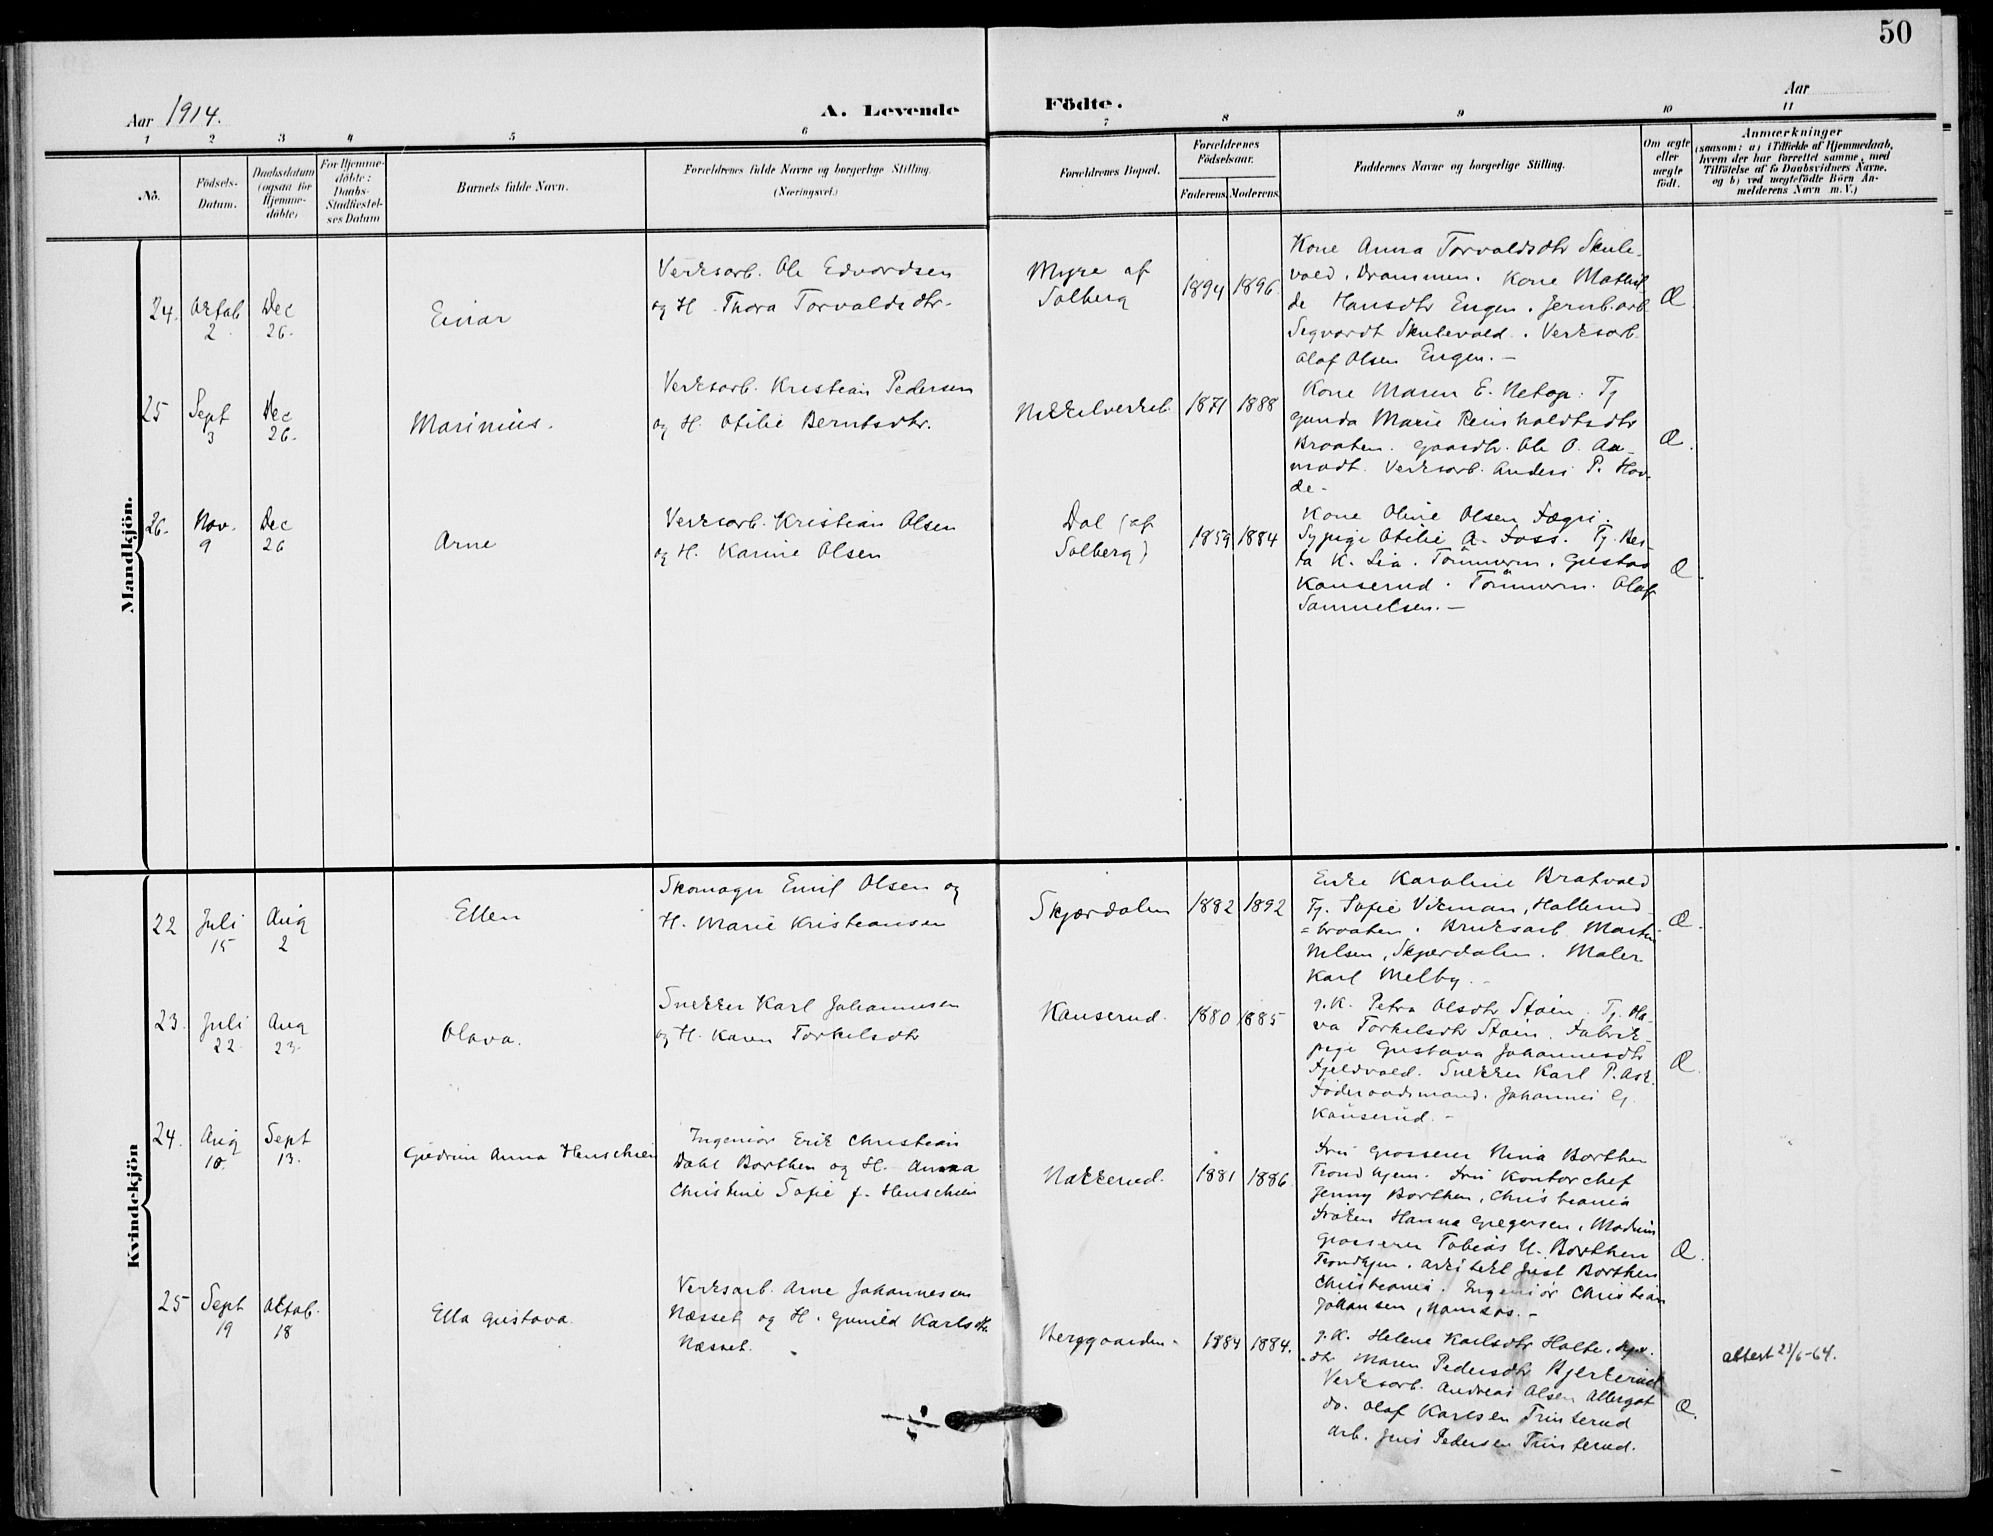 50
Aar 1914.
A. Levende Födte.
Aar
1 2 3 4 5 6 7 8 9 10 11
No.
Födsels-
Datum.
Daabsdatum
(ogsaa for
Hjemme-
döbte)
For Hjemme-
döbte:
Daabs-
Stadfæstel-
ses Datum
Barnets fulde Navn.
Forældrenes fulde Navne og borgerlige Stilling.
(Næringsvei.)
Forældrenes Bopæl.
Forældrenes
Födselsaar.
Faderens. Moderens.
Faddernes Navne og borgerlige Stilling.
Om ægte
eller
uægte
födt.
Anmærkninger
(saasom: a) i Tilfælde af Hjemmedaab,
hvem der har forrettet samme, med
Tilföielse af to Daabsvidners Navne,
og b) ved uægtefödte Börn An-
melderens Navn m. V.)
Mandkjön.
24.
Oktob
2
Dec
26.
Einar
Verksarb. Ole Edvardsen
og H. Thora Torvaldsdtr.
Myre af
Solberg
1894 1896
Kone Anna Torvaldsdtr Skule-
vold, Drammen. Kone Mathil
de Hansdtr Engen. Jernb.arb
Segvardt Skulevold. Verksarb.
Olaf Olsen Engen. —
Æ
25
Sept
3
Dec
26.
Marinius.
Verksarb. Kristian Pedersen
og H. Otilie Berntsdtr.
Nikkelverket.
1871 1888
Kone Maren E. Hetop. Tj
Gunda Marie Reinholdtsdtr
Braaten. Gaardbr. Ole O. Aa-
modt. Verksarb. Anders P. Hov-
de.
Æ.
26.
Nov.
9
Dec
26
Arne
Verksarb. Kristian Olsen
og H. Karine Olsen
Dal (af
Solberg)
1859 1884
Kone Oline Olsen Fægri.
Sypige Otilie A. Foss. Tj. Ber-
ta K. Lia. Tömmerm. Gustav
Kauserud. Tömmerm. Olaf
Samuelsen. —
Æ.
Kvindekjön
22
Juli
15
Aug
2
Ellen
Skomager Emil Olsen og
H. Marie Kristiansen
Skjærdalen
1882 1892
Enke Karoline Bratvold
Tj. Sofie Vikman, Hallerud
=braaten. Bruksarb Martin
Nilsen, Skjærdalen. Maler
Karl Melby. —
Æ.
23.
Juli
22
Aug
23.
Olava.
Snekker Karl Johannesen
og H. Karen Torkelsdtr
Kauserud.
1880 1885
g.K. Petra Olsdtr Stoin. Tj. Ola-
va Torkelsdtr Stoen. Fabrik-
pige Gustava Johannesdtr
Fjeldvold. Snekker Karl P. Ask.
Föderaadsmand. Johannes G.
Kauserud. —
Æ.
24.
Aug
10.
Sept
13.
Gudrun Anna Henschien
Ingeniör Erik Christian
Dahl Borthen og H. Anna
Christine Sofie f. Henschien
Nakkerud.
1881 1886.
Fru Grosserer Nina Borthen
Trondhjem. Fru Kontorchef
Jenny Borthen, Christiania
Fröken Hanna Gregersen, Modum
Grosserer Tobias U. Borthen
Trondhjem. Arkitekt Just Borthen
Christiania. Ingeniör Christian
Johansen, Namsos. —
Æ.
25
Sept
19
Oktob.
18
Ella Gustava.
Verksarb. Arne Johannesen
Næsset og H. Gunild Karlsdtr.
Næsset.
Berggaarden.
1884 1884.
g.K. Helene Karlsdtr Holte.
dtr Maren Pedersdtr Bjerkerud
Verksarb. Andreas Olsen
do. Olaf Karlsen Trinterud
Arb. Jens Pedersen Trinterud.
Æ.
attest 23/6-64.